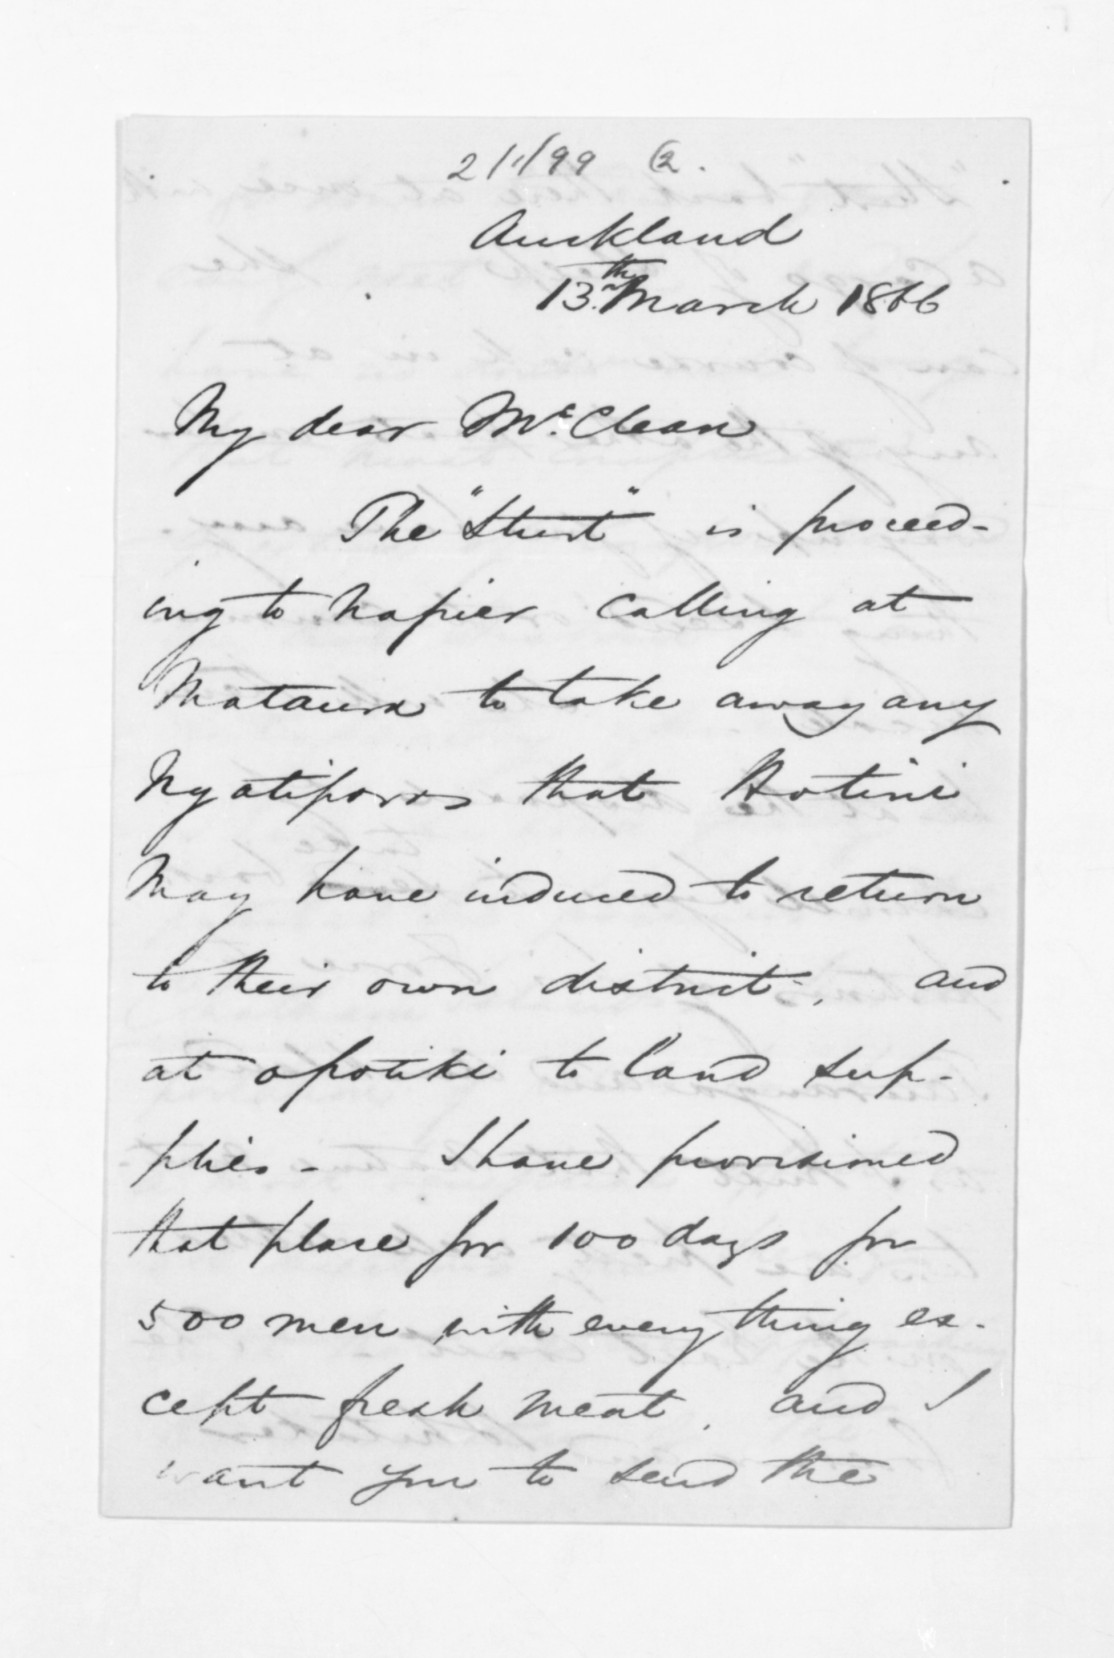 2/1/99 (2.
Auckland
13th March 1866
My dear McClean
The "Sturt" is proceed-
ing to Napier calling at
Mataura to take away any
Ngatiporos that Hotini
May have induced to return
to their own district, and
at opotiki to land sup-
plies - I have provisioned
that place for 100 days for
500 men with everything ex-
cept fresh meat, and I
want you to send the